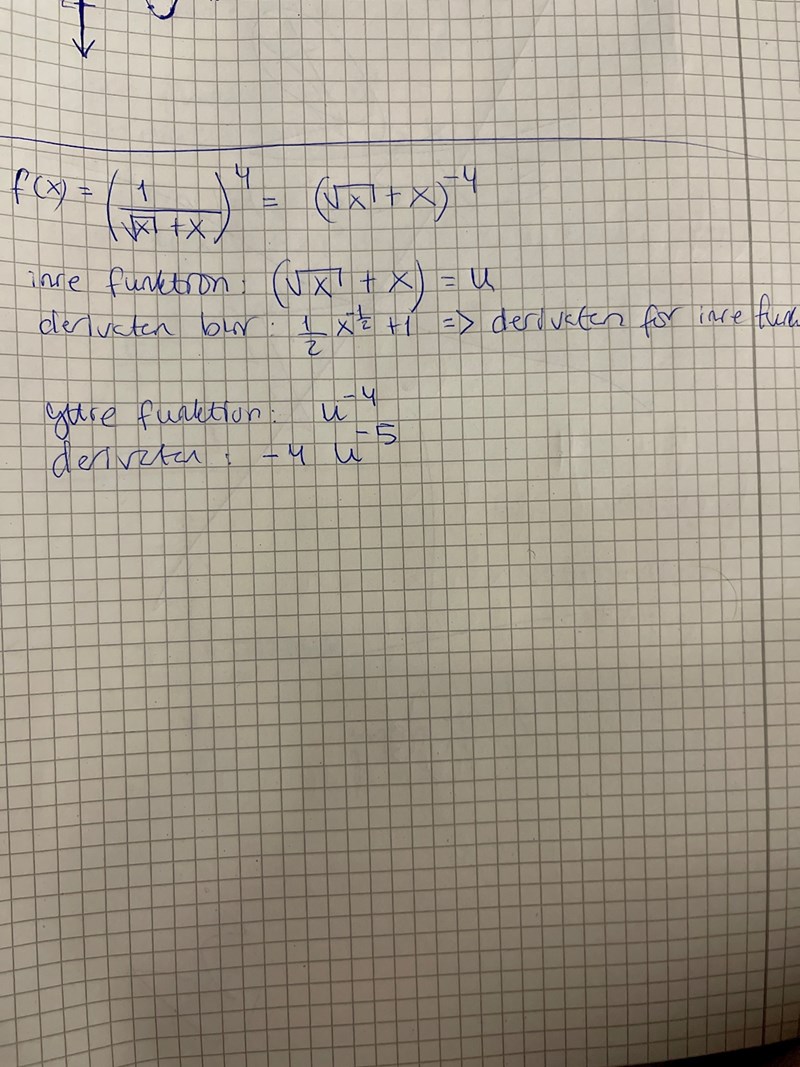 f(x) = (1/(√x + x))^4 = (√x + x)^-4
inre funktion: (√x + x) = u
derivatan blir: 1/2 x^-1/2 + 1 => derivatan for inre funk
yttre funktion: u^-4
derivatan: -4 u^-5